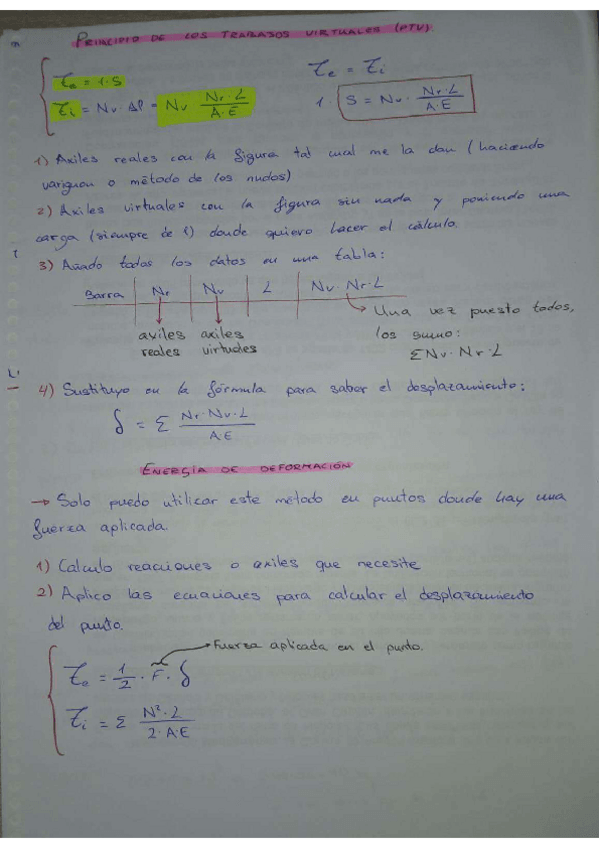 PRINCIPIO DE LOS TRABAJOS VIRTUALES (PTV).
τe = 1·S
τe = τi
τi = Nv · Δl = Nv · Nr·L / A·E
1· S = Nv · Nr·L / A·E
1) Axiles reales con la figura tal cual me la dan (haciendo
varignon o método de los nudos)
2) Axiles virtuales con la figura sin nada y poniendo una
carga (siempre de 1) donde quiero hacer el cálculo.
3) Añado todos los datos en una tabla:
Barra | Nr | Nv | L | Nv·Nr·L
→ Una vez puesto todos,
axiles axiles los sumo:
reales virtuales ΣNv·Nr·L
4) Sustituyo en la fórmula para saber el desplazamiento:
δ = Σ Nr·Nv·L / A·E
ENERGÍA DE DEFORMACIÓN
→ Solo puedo utilizar este método en puntos donde hay una
fuerza aplicada.
1) Calculo reacciones o axiles que necesite
2) Aplico las ecuaciones para calcular el desplazamiento
del punto.
→ Fuerza aplicada en el punto.
τe = 1/2 · F · δ
τi = Σ N²·L / 2·A·E